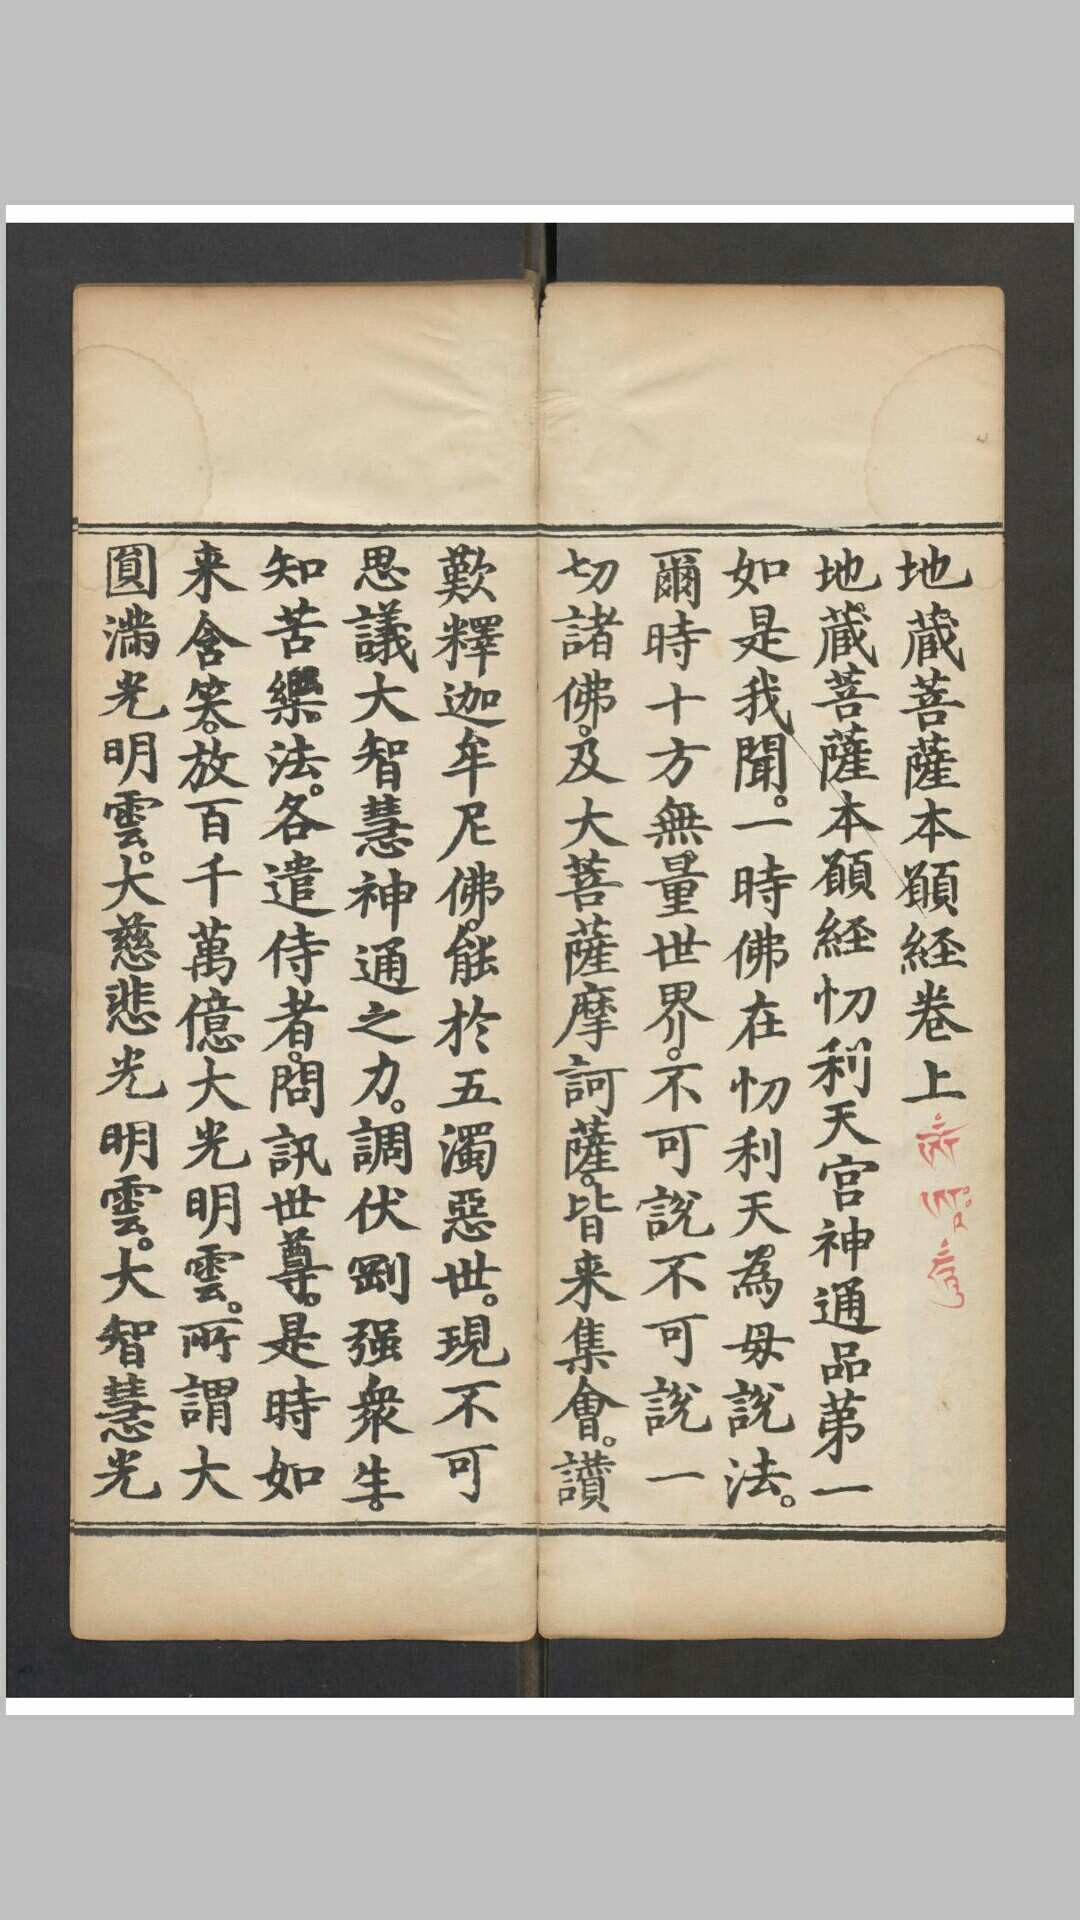 地蔵菩薩本願経卷上
地蔵菩薩本願経忉利天宮神通品苐一
如是我聞。一時佛在忉利天為母說法。
爾時十方無量世界。不可說不可說一
切諸佛。及大菩薩摩訶薩。皆来集會。讃
歎釋迦牟尼佛。能於五濁惡世。現不可
思議大智慧神通之力。調伏剛强衆生。
知苦樂法。各遣侍者。問訊世尊。是時如
来含笑。放百千萬億大光明雲。所謂大
圓滿光明雲。大慈悲光明雲。大智慧光